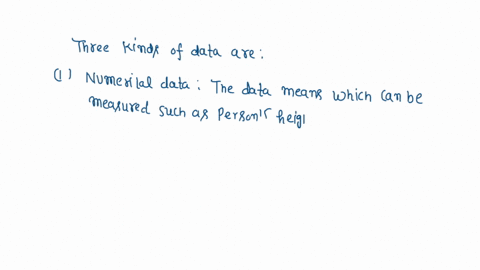 Three kinds of data are:
(1) Numerical data: The data means which can be
measured such as Person's heig